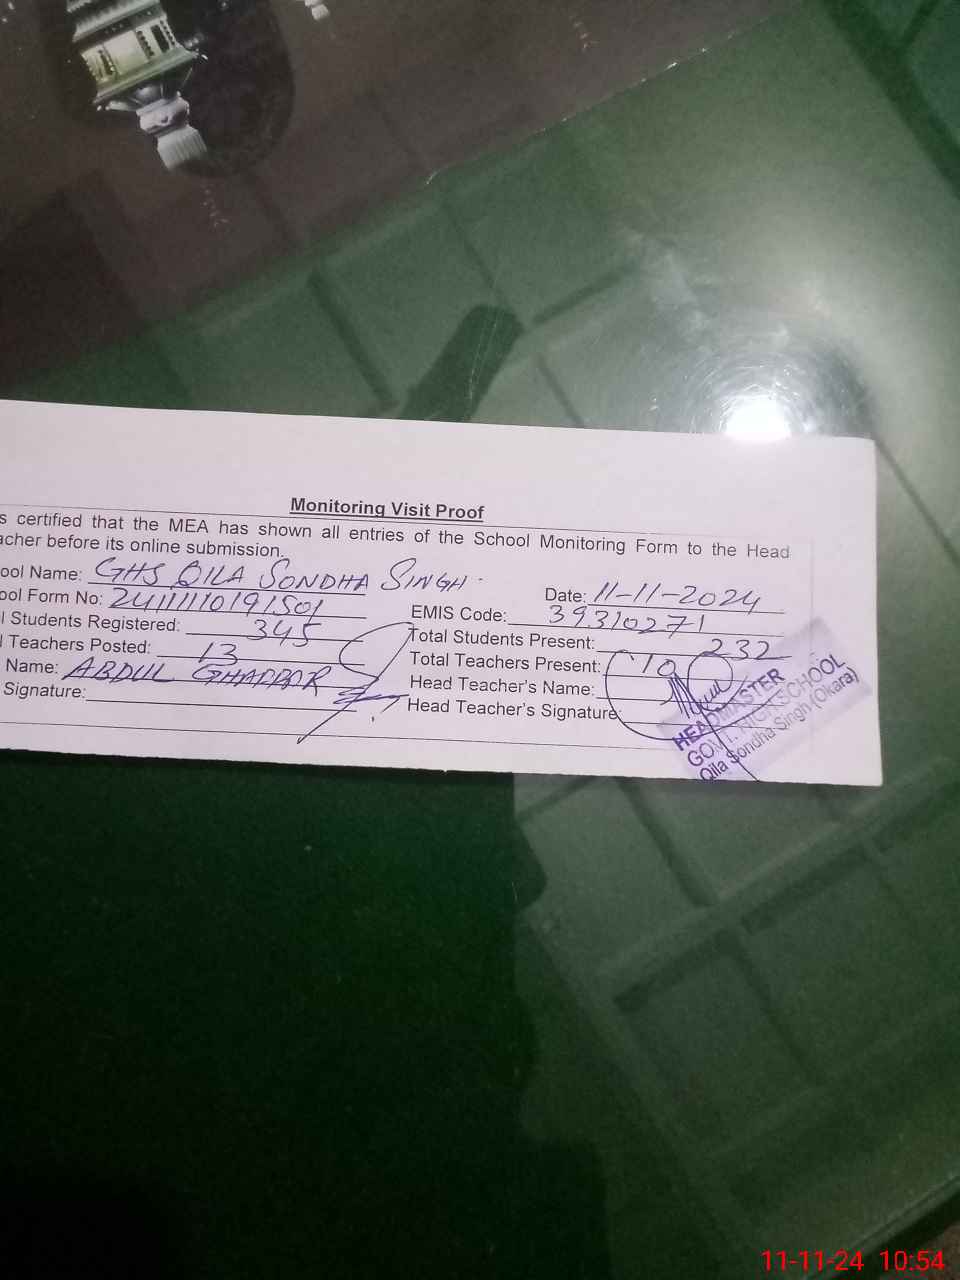 Monitoring Visit Proof
s certified that the MEA has shown all entries of the School Monitoring Form to the Head
acher before its online submission.
ool Name: GHS QILA SONDHA SINGH. Date: 11-11-2024
ool Form No: EMIS Code: 39310271
l Students Registered: 345 Total Students Present: 232
l Teachers Posted: 13 Total Teachers Present: 10
Name: ABDUL GHAFFAR Head Teacher's Name:
Signature: Head Teacher's Signature:
HEADMASTER
GOVT. HIGH SCHOOL
Qila Sondha Singh (Okara)
11-11-24 10:54